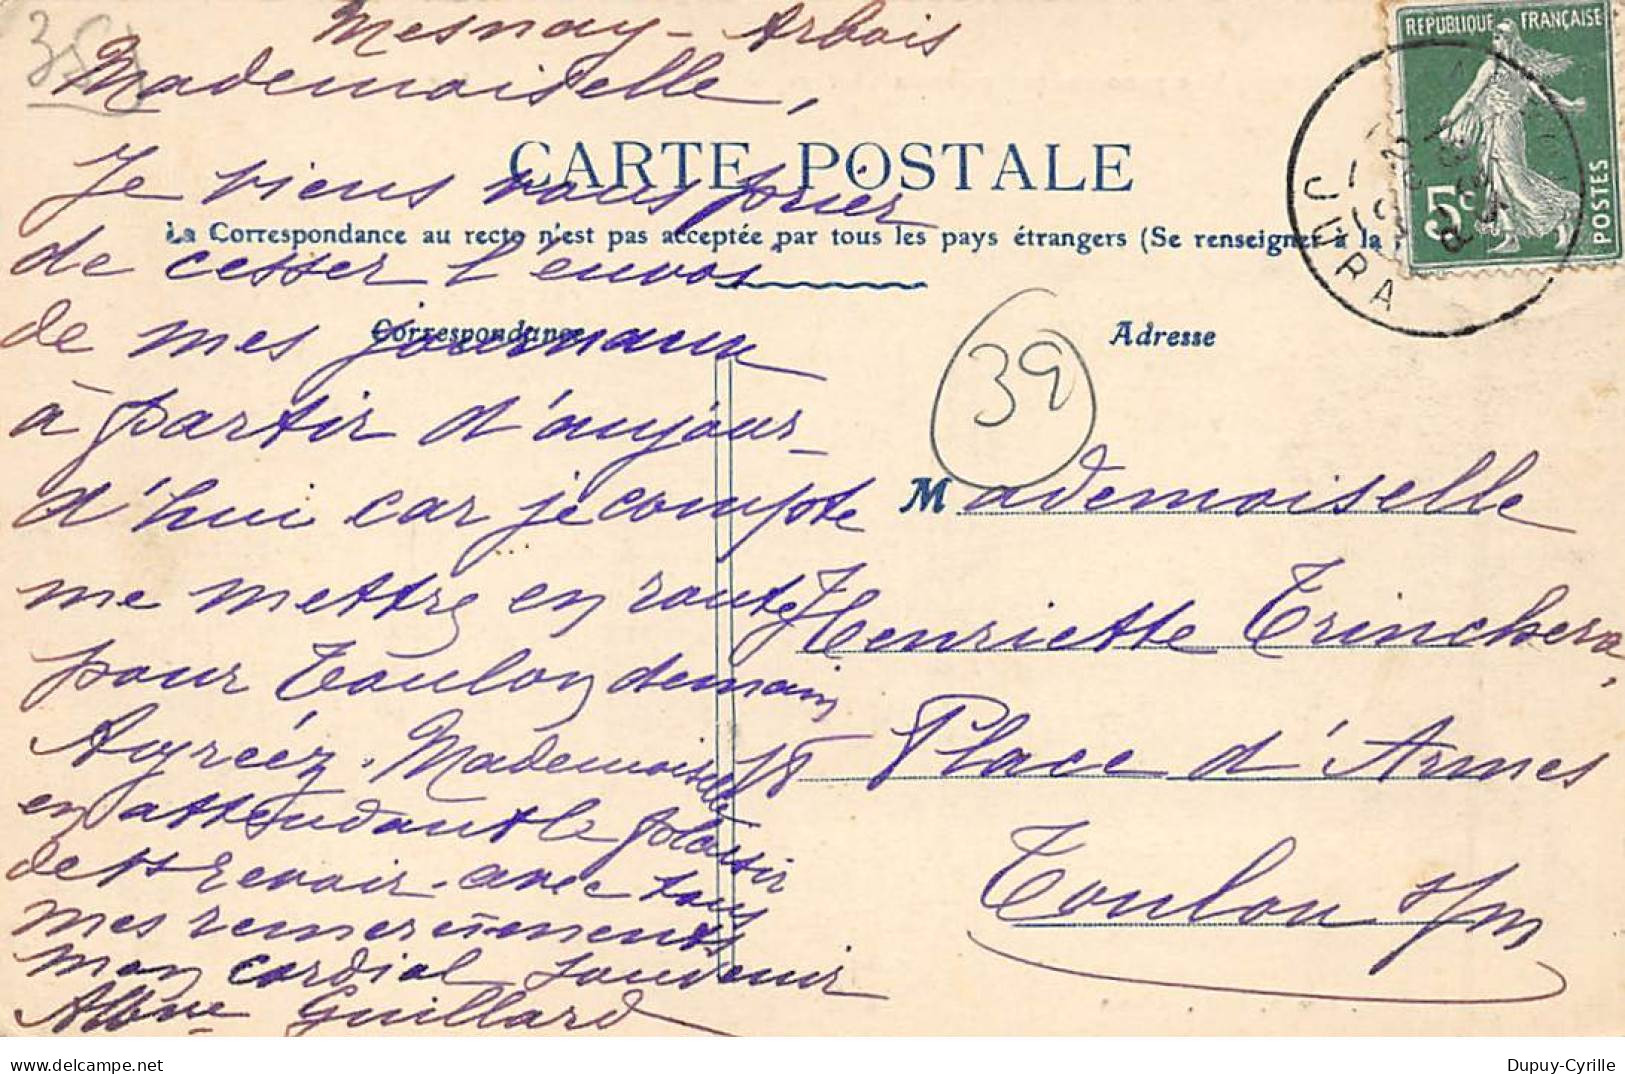 Mesnay - Arbois
Mademoiselle,
CARTE POSTALE
Je viens vous prier
La Correspondance au recto n'est pas acceptée par tous les pays étrangers (Se renseigner à la
de cesser l'envoi
Correspondance
Adresse
de mes journaux
à partir d'aujour-
d'hui car je compte
me mettre en route
pour Toulon demain
Agréez. Mademoiselle
en attendant le plaisir
de revoir. avec tous
mes remerciements
mon cordial souvenir
Albine Guillard
39
Mademoiselle
Henriette Trinchero,
18 Place d'Armes
Toulon s/m
REPUBLIQUE FRANÇAISE
5c
POSTES
JURA
delcampe.net
Dupuy-Cyrille